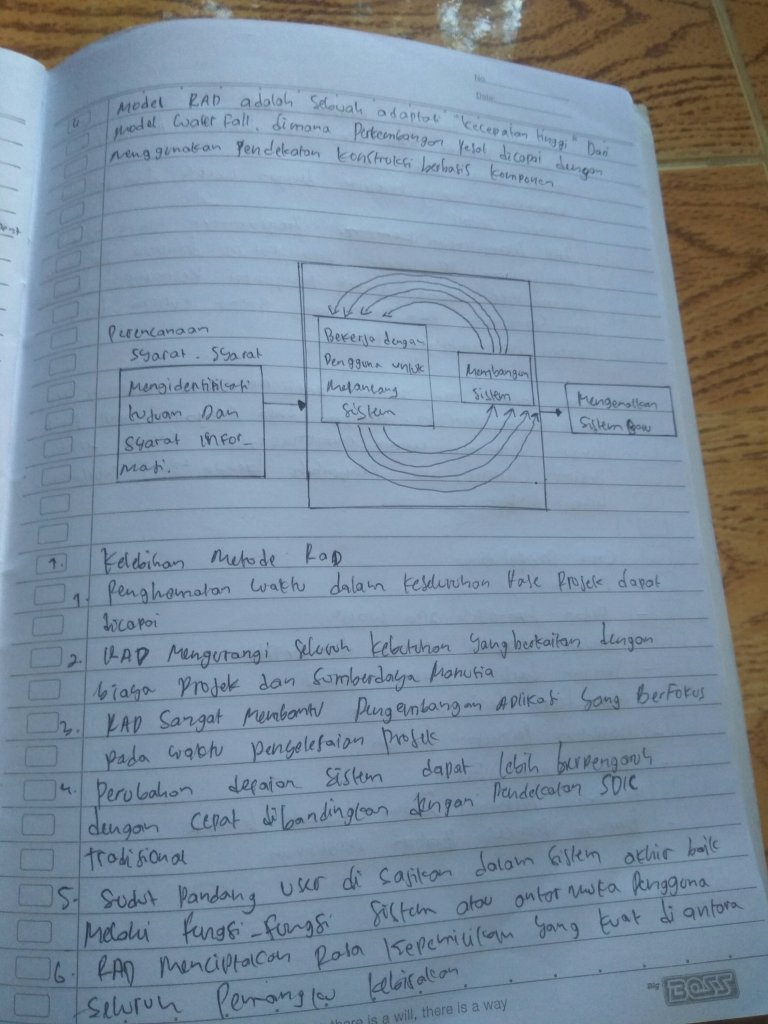 No.
Date.
Model RAD adalah sebuah adaptasi "kecepatan tinggi" Dari
Model Water Fall. dimana Perkembangan Pesat dicapai dengan
Menggunakan Pendekatan konstruksi berbasis komponen
Perencanaan
Syarat - Syarat
Mengidentifikasi
tujuan Dan
Syarat infor-
Masi.
Bekerja dengan
Pengguna untuk
Merancang
Sistem
Membangun
Sistem
Mengenalkan
Sistem Baru
1. Kelebihan Metode RAD
1. Penghematan waktu dalam keseluruhan Fase Projek dapat
dicapai
2. RAD Mengurangi seluruh kebutuhan yang berkaitan dengan
biaya Projek dan Sumberdaya Manusia
3. RAD Sangat Membantu Pengembangan Aplikasi yang BerFokus
Pada waktu Penyelesaian Projek
4. Perubahan desain Sistem dapat lebih berpengaruh
dengan cepat dibandingkan dengan Pendekatan SDLC
tradisional
5. Sudut Pandang User di Sajikan dalam Sistem akhir baik
Melalui Fungsi-Fungsi Sistem atau antar Muka Pengguna
6. RAD Menciptakan Rasa Kepemilikan yang kuat di antara
Seluruh Pemangku Kebijakan
Big BOSS
there is a will, there is a way